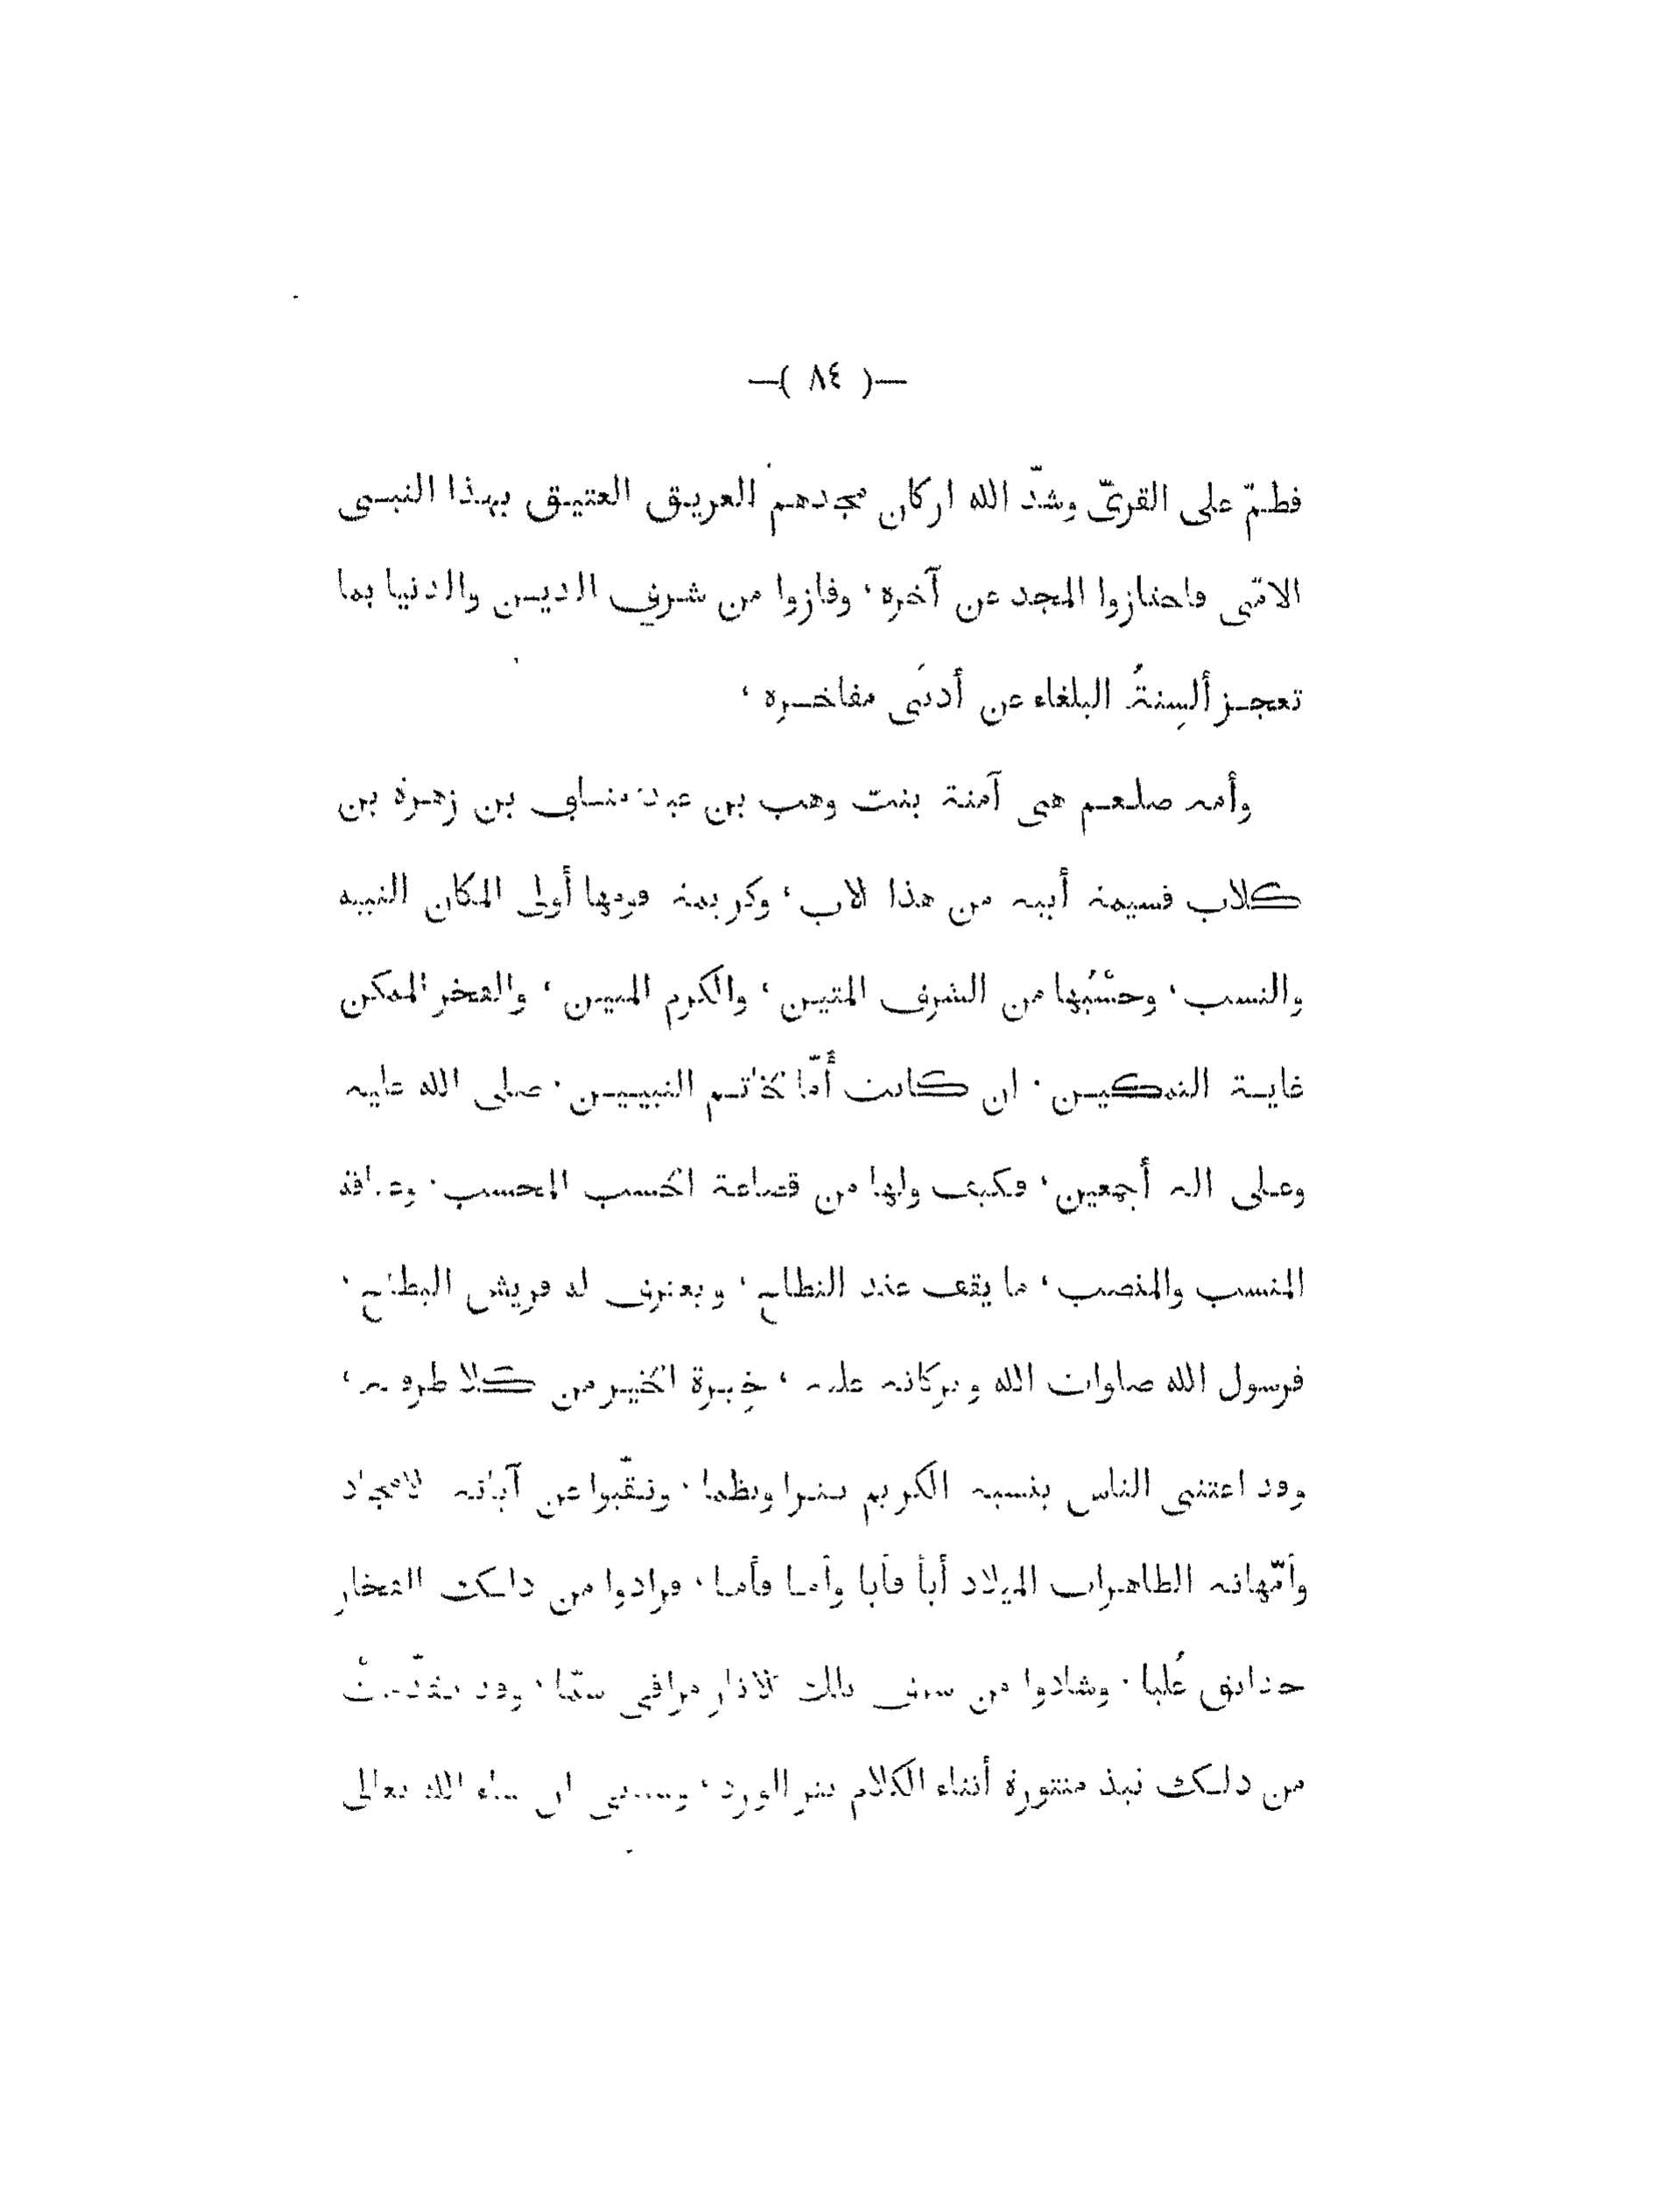 —( ٨٤ )—
فطمّ على القرىّ وشدّ الله اركان مجدهم العريق العتيق بهذا النبى
الامّى فاحتازوا المجد عن آخره، وفازوا من شرف الدين والدنيا بما
تعجز ألسِنةُ البلغاء عن أدنَى مفاخره،
وأمه صلعم هى آمنة بنت وهب بن عبد مناف بن زهرة بن
كلاب قسيمة أبيه من هذا الاب، وكريمة قومها أولى المكان النبيه
والنسب، وحسْبُها من الشرف المتين، والكرم المبين، والفخر الممكن
غاية التمكين. ان كانت أُمّا لخاتم النبيين. صلى الله عليه
وعلى اله أجمعين، فكيف ولها من قصاعة الحسب المحسب.
المنسب والمنصب، ما يقف عند النطاح، ويعترف له قريش البطاح.
فرسول الله صلوات الله وبركاته عليه، خِيرة الخير من كلا طرفيه،
وقد اعتنى الناس بنسبه الكريم نثرا ونظما. ونقّبوا عن آبائه الامجاد
وأمّهاته الطاهرات الميلاد أبا فأبا وأما فأما. فرادوا من ذلك الفخار
حدائق غُلبا. وشادوا من شرف تلك الاثار مراقى شمّا. وقد تقدّمتْ
من ذلك نبذ منثورة أثناء الكلام نثر الورد، ان شاء الله تعالى